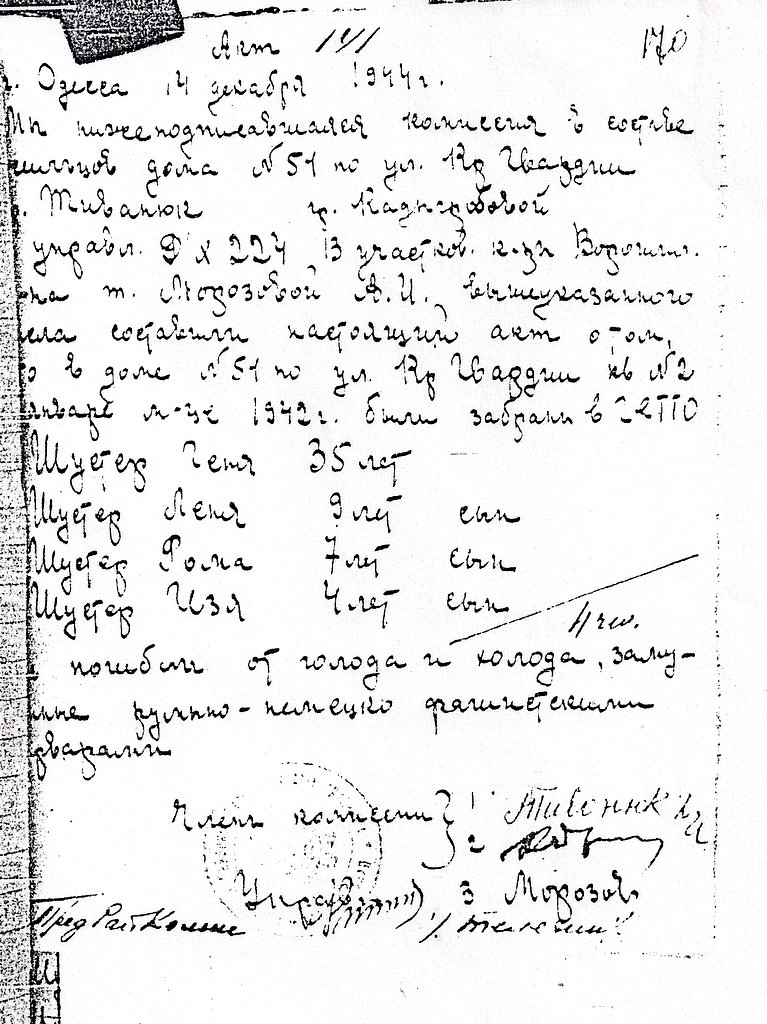 Акт 141 170
г. Одесса 14 декабря 1944г.
Мы нижеподписавшаяся комиссия в составе
жильцов дома N51 по ул. Кр Гвардии
гр. Тиванюк гр.
управл. Д/Х 224 13 участков. к-зи Ворошил.
она т. Морозовой А.И. вышеуказанного
числа составили настоящий акт о том,
что в доме N51 по ул. Кр Гвардии кв N2
январе м-це 1942г. были забраны в гетто
Шустер Геня 35 лет
Шустер Леня 9 лет сын
Шустер Рома 7 лет сын
Шустер Изя 4 лет сын
4 чел.
погибли от голода и холода, заму-
нные румыно-немецко фашистскими
варварами
Члены комиссии } 1
2
Управ 3 Морозов
Пред Рай Комис